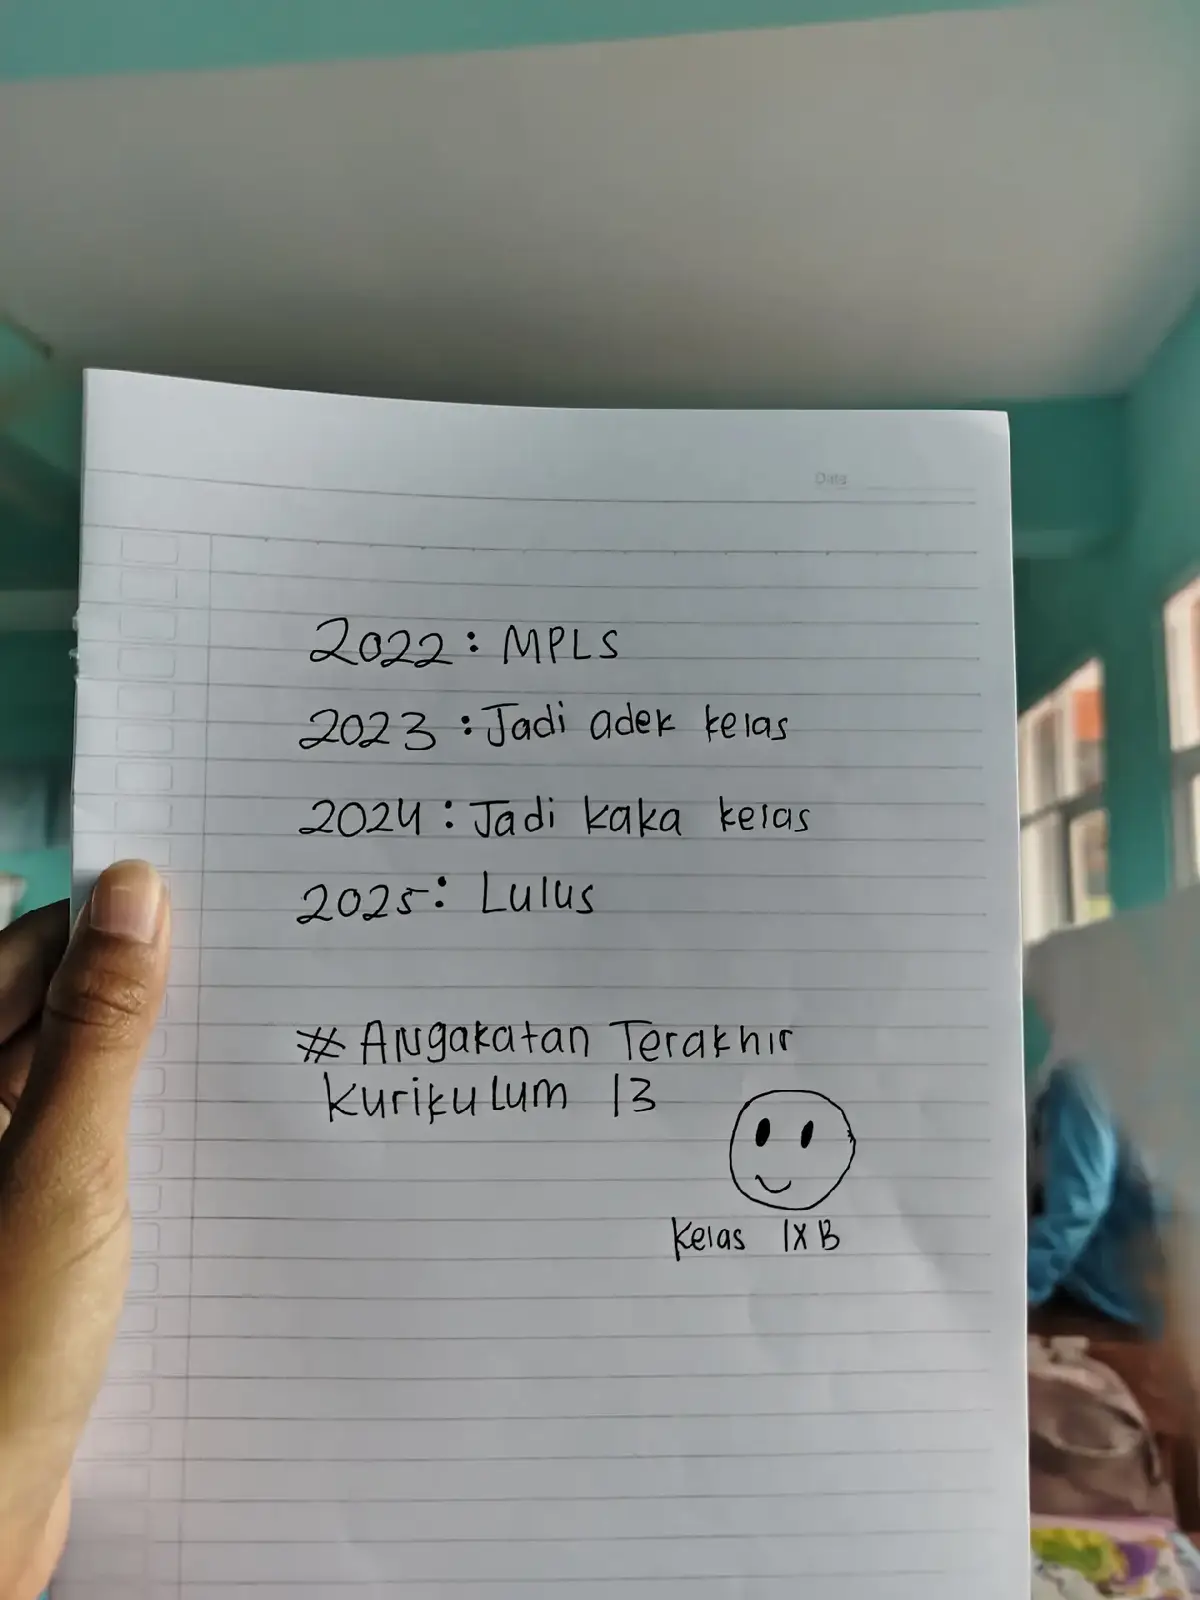 Date
2022 : MPLS
2023 : Jadi adek kelas
2024 : Jadi kaka kelas
2025 : Lulus
# Angakatan Terakhir
Kurikulum 13
Kelas IX B